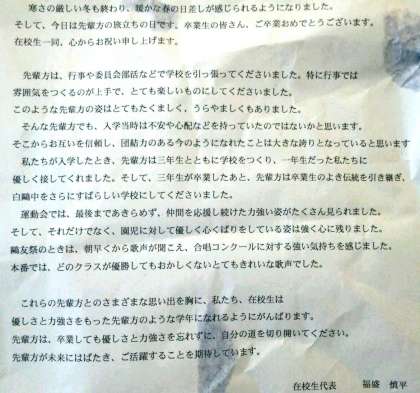 寒さの厳しい冬も終わり、暖かな春の日差しが感じられるようになりました。
そして、今日は先輩方の旅立ちの日です。卒業生の皆さん、ご卒業おめでとうございます。
在校生一同、心からお祝い申し上げます。
先輩方は、行事や委員会部活などで学校を引っ張ってくださいました。特に行事では
雰囲気をつくるのが上手で、とても楽しいものにしてくださいました。
このような先輩方の姿はとてもたくましく、うらやましくもありました。
そんな先輩方でも、入学当時は不安や心配などを持っていたのではないかと思います。
そこからお互いを信頼し、団結力のある今のようになれたことは大きな誇りとなっていると思います
私たちが入学したとき、先輩方は三年生とともに学校をつくり、一年生だった私たちに
優しく接してくれました。そして、三年生が卒業したあと、先輩方は卒業生のよき伝統を引き継ぎ、
白鷗中をさらにすばらしい学校にしてくださいました。
運動会では、最後まであきらめず、仲間を応援し続けた力強い姿がたくさん見られました。
そして、それだけでなく、園児に対して優しく心くばりをしている姿は強く心に残りました。
鷗友祭のときは、朝早くから歌声が聞こえ、合唱コンクールに対する強い気持ちを感じました。
本番では、どのクラスが優勝してもおかしくないとてもきれいな歌声でした。
これらの先輩方とのさまざまな思い出を胸に、私たち、在校生は
優しさと力強さをもった先輩方のような学年になれるようにがんばります。
先輩方は、卒業しても優しさと力強さを忘れずに、自分の道を切り開いてください。
先輩方が未来にはばたき、ご活躍することを期待しています。
在校生代表 福盛 慎平